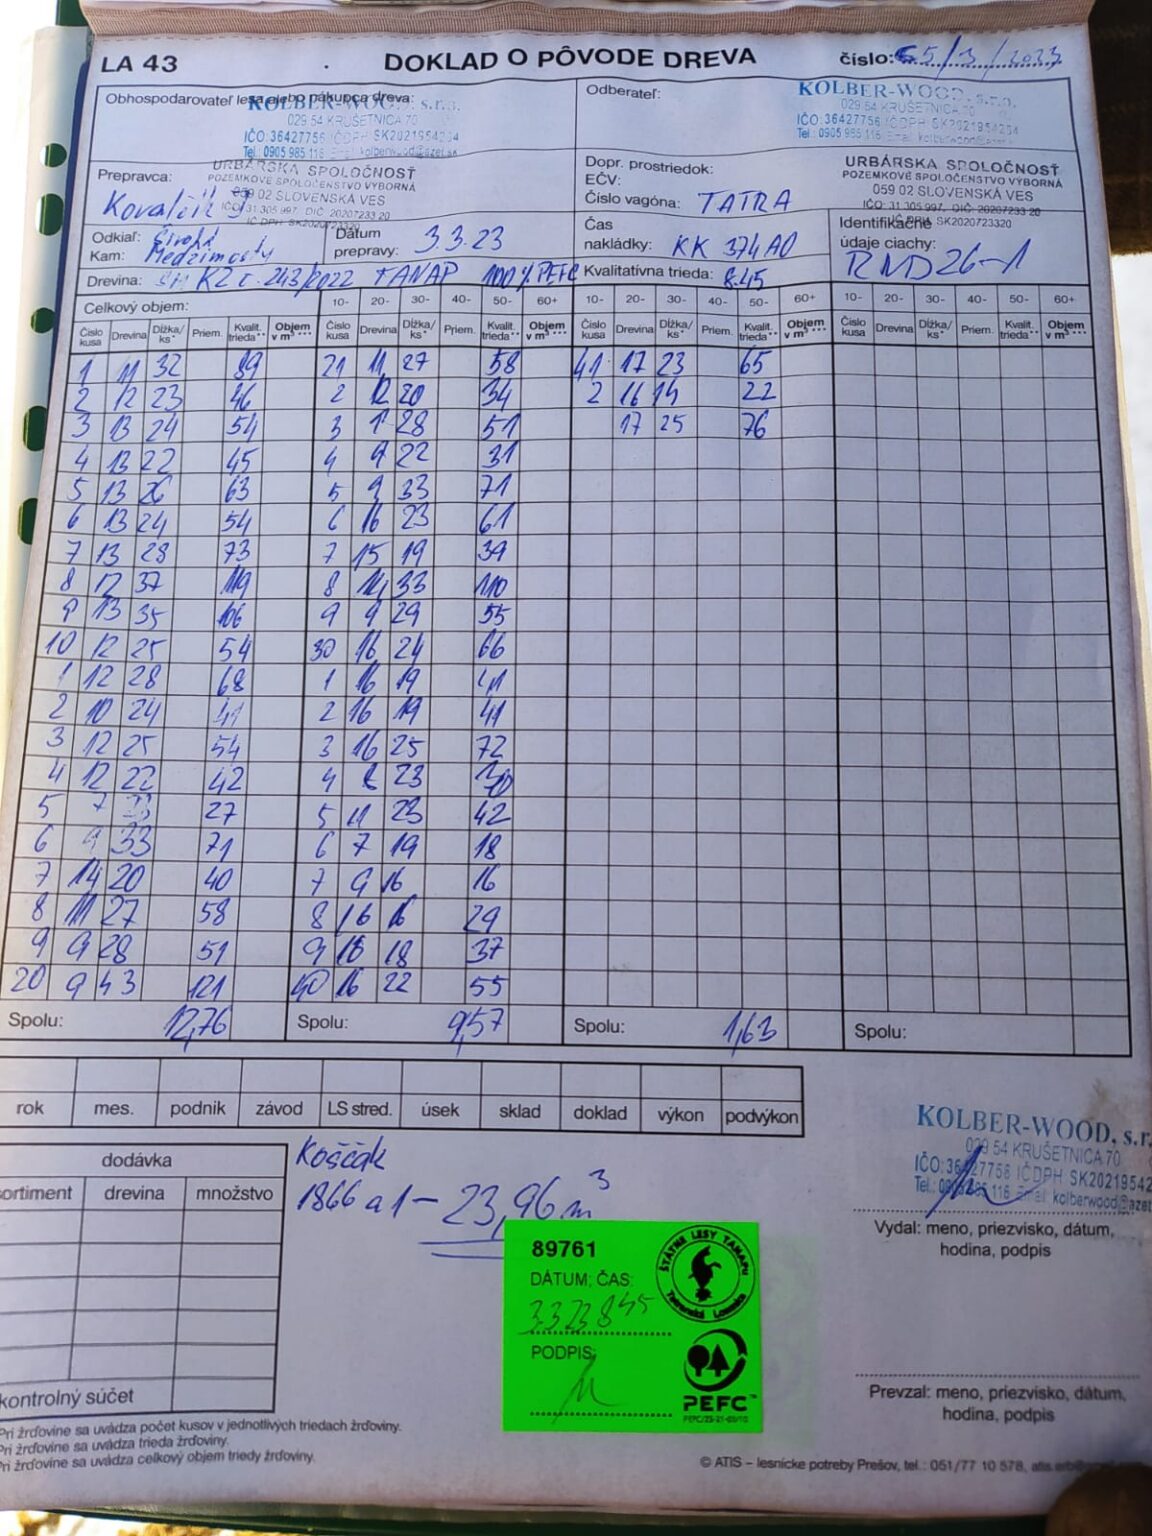 LA 43
DOKLAD O PÔVODE DREVA
číslo: 65/3/2023
Obhospodarovateľ lesa alebo nákupca dreva:
KOLBER-WOOD, s.r.o.
029 54 KRUŠETNICA 70
IČO: 36427756 IČDPH SK2021954254
Tel.: 0905 985 116 Email: kolberwood@azet.sk
Odberateľ:
KOLBER-WOOD, s.r.o.
029 54 KRUŠETNICA 70
IČO: 36427756 IČDPH SK2021954254
Tel.: 0905 985 116 Email: kolberwood@azet.sk
Prepravca:
URBÁRSKA SPOLOČNOSŤ
POZEMKOVÉ SPOLOČENSTVO VÝBORNÁ
059 02 SLOVENSKÁ VES
IČO: 31 305 997, DIČ: 2020723320
IČ DPH: SK2020723320
Kovalčík J
Dopr. prostriedok:
EČV:
Číslo vagóna: TATRA
URBÁRSKA SPOLOČNOSŤ
POZEMKOVÉ SPOLOČENSTVO VÝBORNÁ
059 02 SLOVENSKÁ VES
IČO: 31 305 997, DIČ: 2020723320
IČ DPH: SK2020723320
Odkiaľ:
Kam: Medzimosty
Dátum
prepravy: 3.3.23
Čas
nakládky: KK 374AO
Identifikačné
údaje ciachy:
RMD26-1
Drevina: SM KZ č. 243/2022 TANAP 100% PEFC
Kvalitatívna trieda: 8.45
Celkový objem:
10- 20- 30- 40- 50- 60+ 10- 20- 30- 40- 50- 60+ 10- 20- 30- 40- 50- 60+
Číslo kusa Drevina Dĺžka/ ks* Priem. Kvalit. trieda** Objem v m³*** Číslo kusa Drevina Dĺžka/ ks* Priem. Kvalit. trieda** Objem v m³*** Číslo kusa Drevina Dĺžka/ ks* Priem. Kvalit. trieda** Objem v m³*** Číslo kusa Drevina Dĺžka/ ks* Priem. Kvalit. trieda** Objem v m³***
1 11 32 89 21 11 27 58 41 17 23 65
2 12 23 46 2 12 20 34 2 16 14 22
3 13 24 54 3 28 51 17 25 76
4 13 22 45 4 9 22 31
5 13 26 63 5 9 33 71
6 13 24 54 6 16 23 61
7 13 28 73 7 15 19 39
8 12 37 119 8 14 33 110
9 13 35 106 9 9 29 55
10 12 25 54 30 16 24 66
1 12 28 68 1 16 19 41
2 10 24 41 2 16 19 41
3 12 25 54 3 16 25 72
4 12 22 42 4 8 23 30
5 7 27 5 11 23 42
6 9 33 71 6 7 19 18
7 14 20 40 7 9 16 16
8 11 27 58 8 16 16 29
9 9 28 51 9 16 18 37
20 9 43 121 40 16 22 55
Spolu: 12,76 Spolu: 9,57 Spolu: 1,63 Spolu:
rok mes. podnik závod LS stred. úsek sklad doklad výkon podvýkon
dodávka
sortiment drevina množstvo
kontrolný súčet
Koščák
1866 a1 – 23,96 m³
89761
DÁTUM; ČAS:
3323 845
PODPIS:
ŠTÁTNE LESY TANAPU
Tatranská Lomnica
PEFC™
KOLBER-WOOD, s.r.
029 54 KRUŠETNICA 70
IČO: 36427756 IČDPH SK20219542
Tel.: 0905 985 116 Email: kolberwood@azet
Vydal: meno, priezvisko, dátum,
hodina, podpis
Prevzal: meno, priezvisko, dátum,
hodina, podpis
Pri žrďovine sa uvádza počet kusov v jednotlivých triedach žrďoviny.
Pri žrďovine sa uvádza trieda žrďoviny.
Pri žrďovine sa uvádza celkový objem triedy žrďoviny.
© ATIS – lesnícke potreby Prešov, tel.: 051/77 10 578,